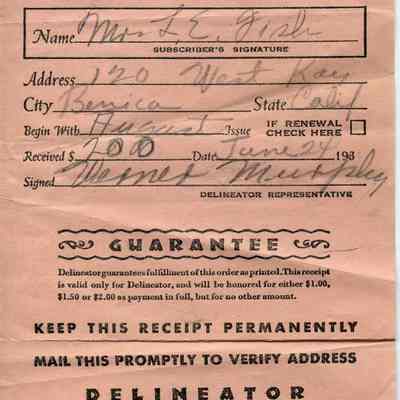 Name Mrs L. E. Fish
SUBSCRIBER'S SIGNATURE
Address 120 West Kay
City Benica State Calif
Begin With August Issue IF RENEWAL CHECK HERE
Received $ 200 Date June 24 193
Signed Werner Murphy
DELINEATOR REPRESENTATIVE
GUARANTEE
Delineator guarantees fulfillment of this order as printed. This receipt
is valid only for Delineator, and will be honored for either $1.00,
$1.50 or $2.00 as payment in full, but for no other amount.
KEEP THIS RECEIPT PERMANENTLY
MAIL THIS PROMPTLY TO VERIFY ADDRESS
DELINEATOR